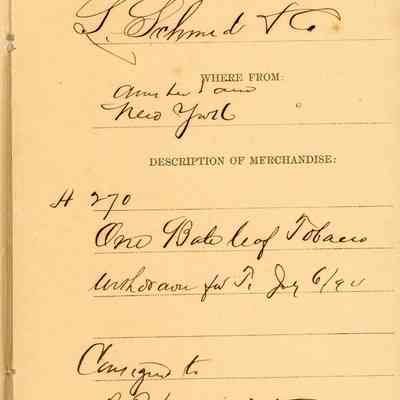 L. Schmid & Co
WHERE FROM:
Amsterdam
New York
DESCRIPTION OF MERCHANDISE:
# 270
One Bale leaf Tobacco
Withdrawn for T. July 6/90
Consigned to